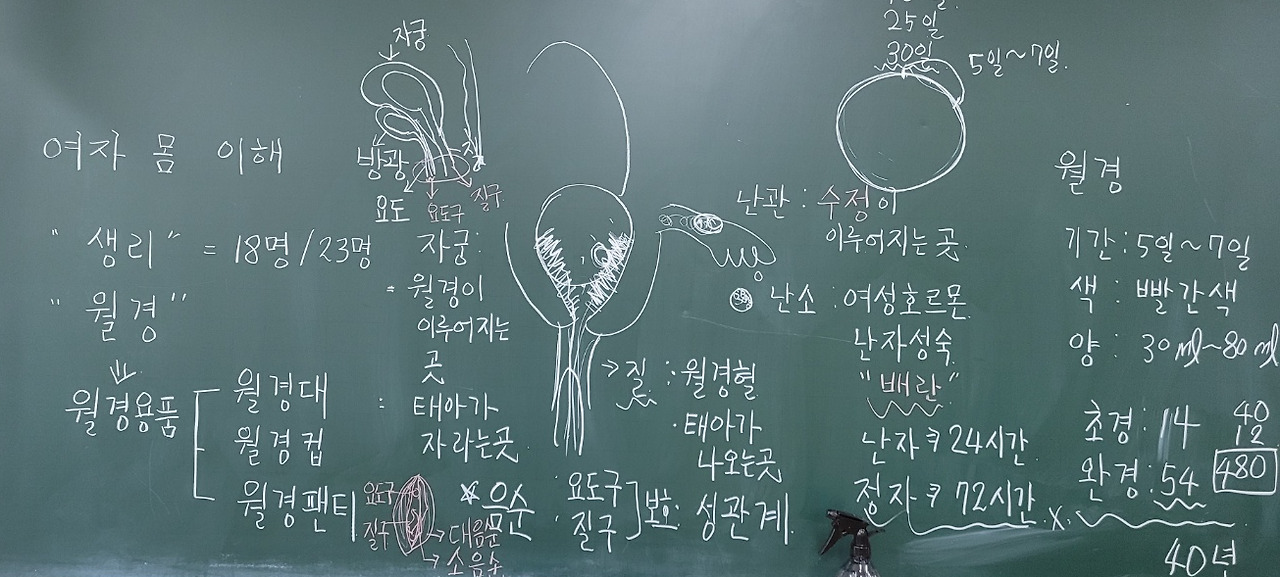 여자 몸 이해
"생리" = 18명/23명
"월경"
월경용품
월경대
월경컵
월경팬티
자궁
방광
장
요도
요도구
질구
자궁:
= 월경이
이루어지는
곳
: 태아가
자라는곳
요도구
질구
대음순
소음순
음순 : 요도구
질구
보호
성관계
→질 : 월경혈
· 태아가
나오는곳
25일
30일
5일~7일
난관 : 수정이
이루어지는 곳.
난소 : 여성호르몬
난자성숙
"배란"
난자 24시간
정자 72시간
월경
기간 : 5일~7일
색 : 빨간색
양 : 30ml~80ml
초경 : 14
완경 : 54
40
12
480
x
40년